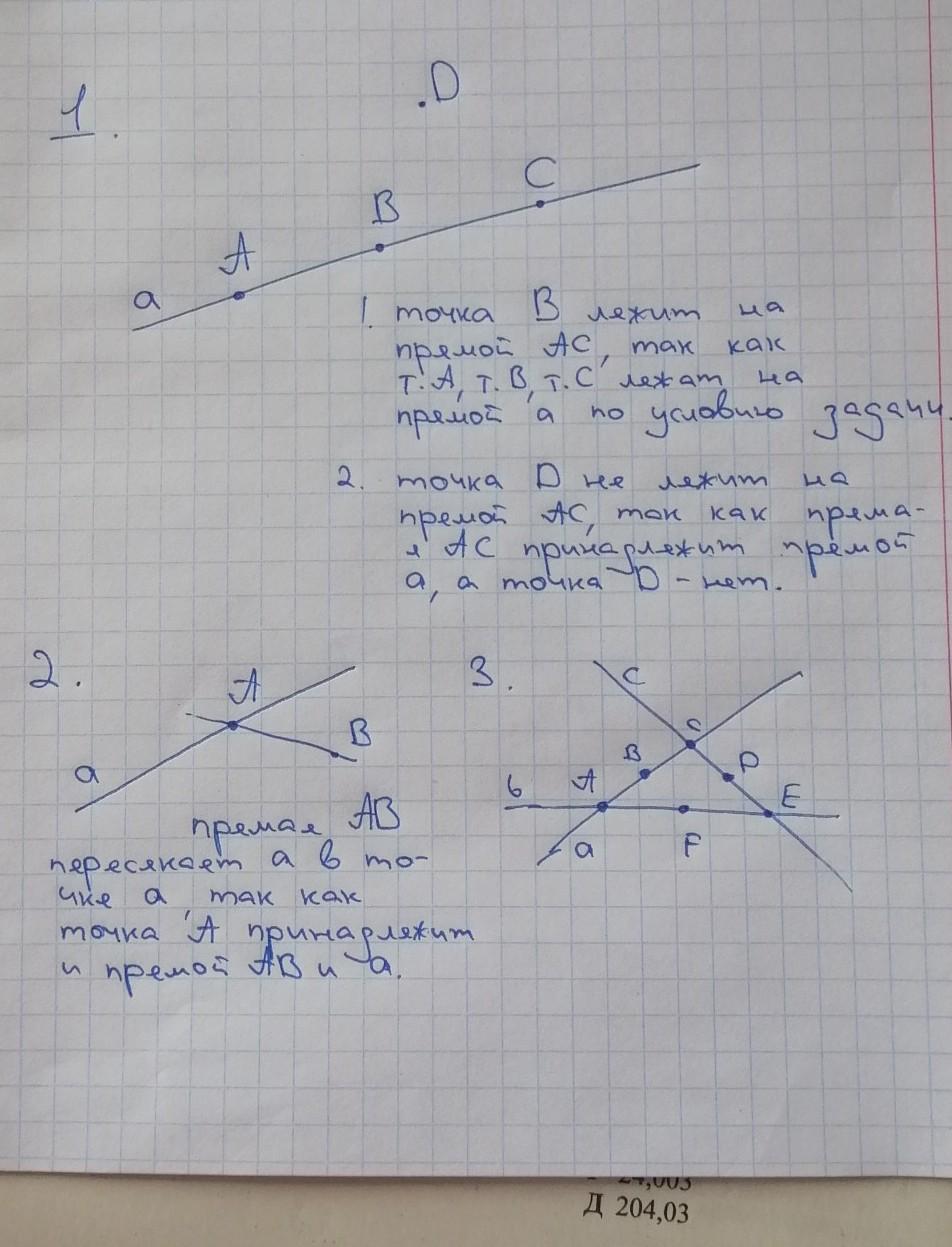 1.
.D
C
B
A
a
1. точка B лежит на
прямой AC, так как
т. A, т. B, т. C лежат на
прямой a по условию задачи.
2. точка D не лежит на
прямой AC, так как пряма-
я AC принадлежит прямой
a, а точка D - нет.
2.
A
B
a
прямая AB
пересекает a в то-
чке a, так как
точка A принадлежит
и прямой AB и a.
3.
C
C
B
D
b
A
E
a
F
Д 204,03